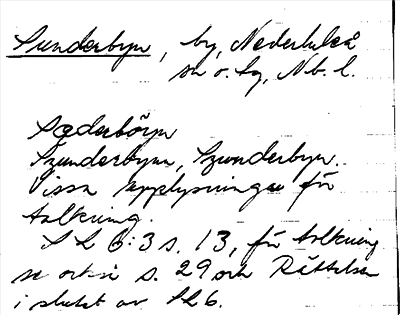 Sunderbyn, by, Nederluleå
sn o. tg, Nb. l.
Sæderbörn
Szunderbynn, Szwnderbyn.
Vissa upplysningar för
tolkning.
SL 6:3 s. 13, för tolkning
se också s. 29 och Rättelser
i slutet av SL 6.